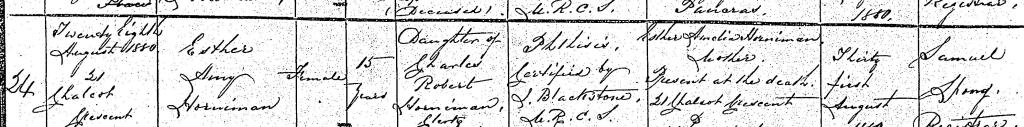 (Deceased). M.R.C.S. Pancras. 1880. Registrar.
24
Twenty eighth
August 1880
21
Chalcot
Crescent
Esther
Amy
Horniman
Female
15
Years
Daughter of
Charles
Robert
Horniman,
Clerk
Phthisis,
Certified by
J. Blackstone,
M.R.C.S.
Esther Amelia Horniman
Mother.
Present at the death.
21 Chalcot Crescent
Thirty
first
August
Samuel
Spong.
Registrar.